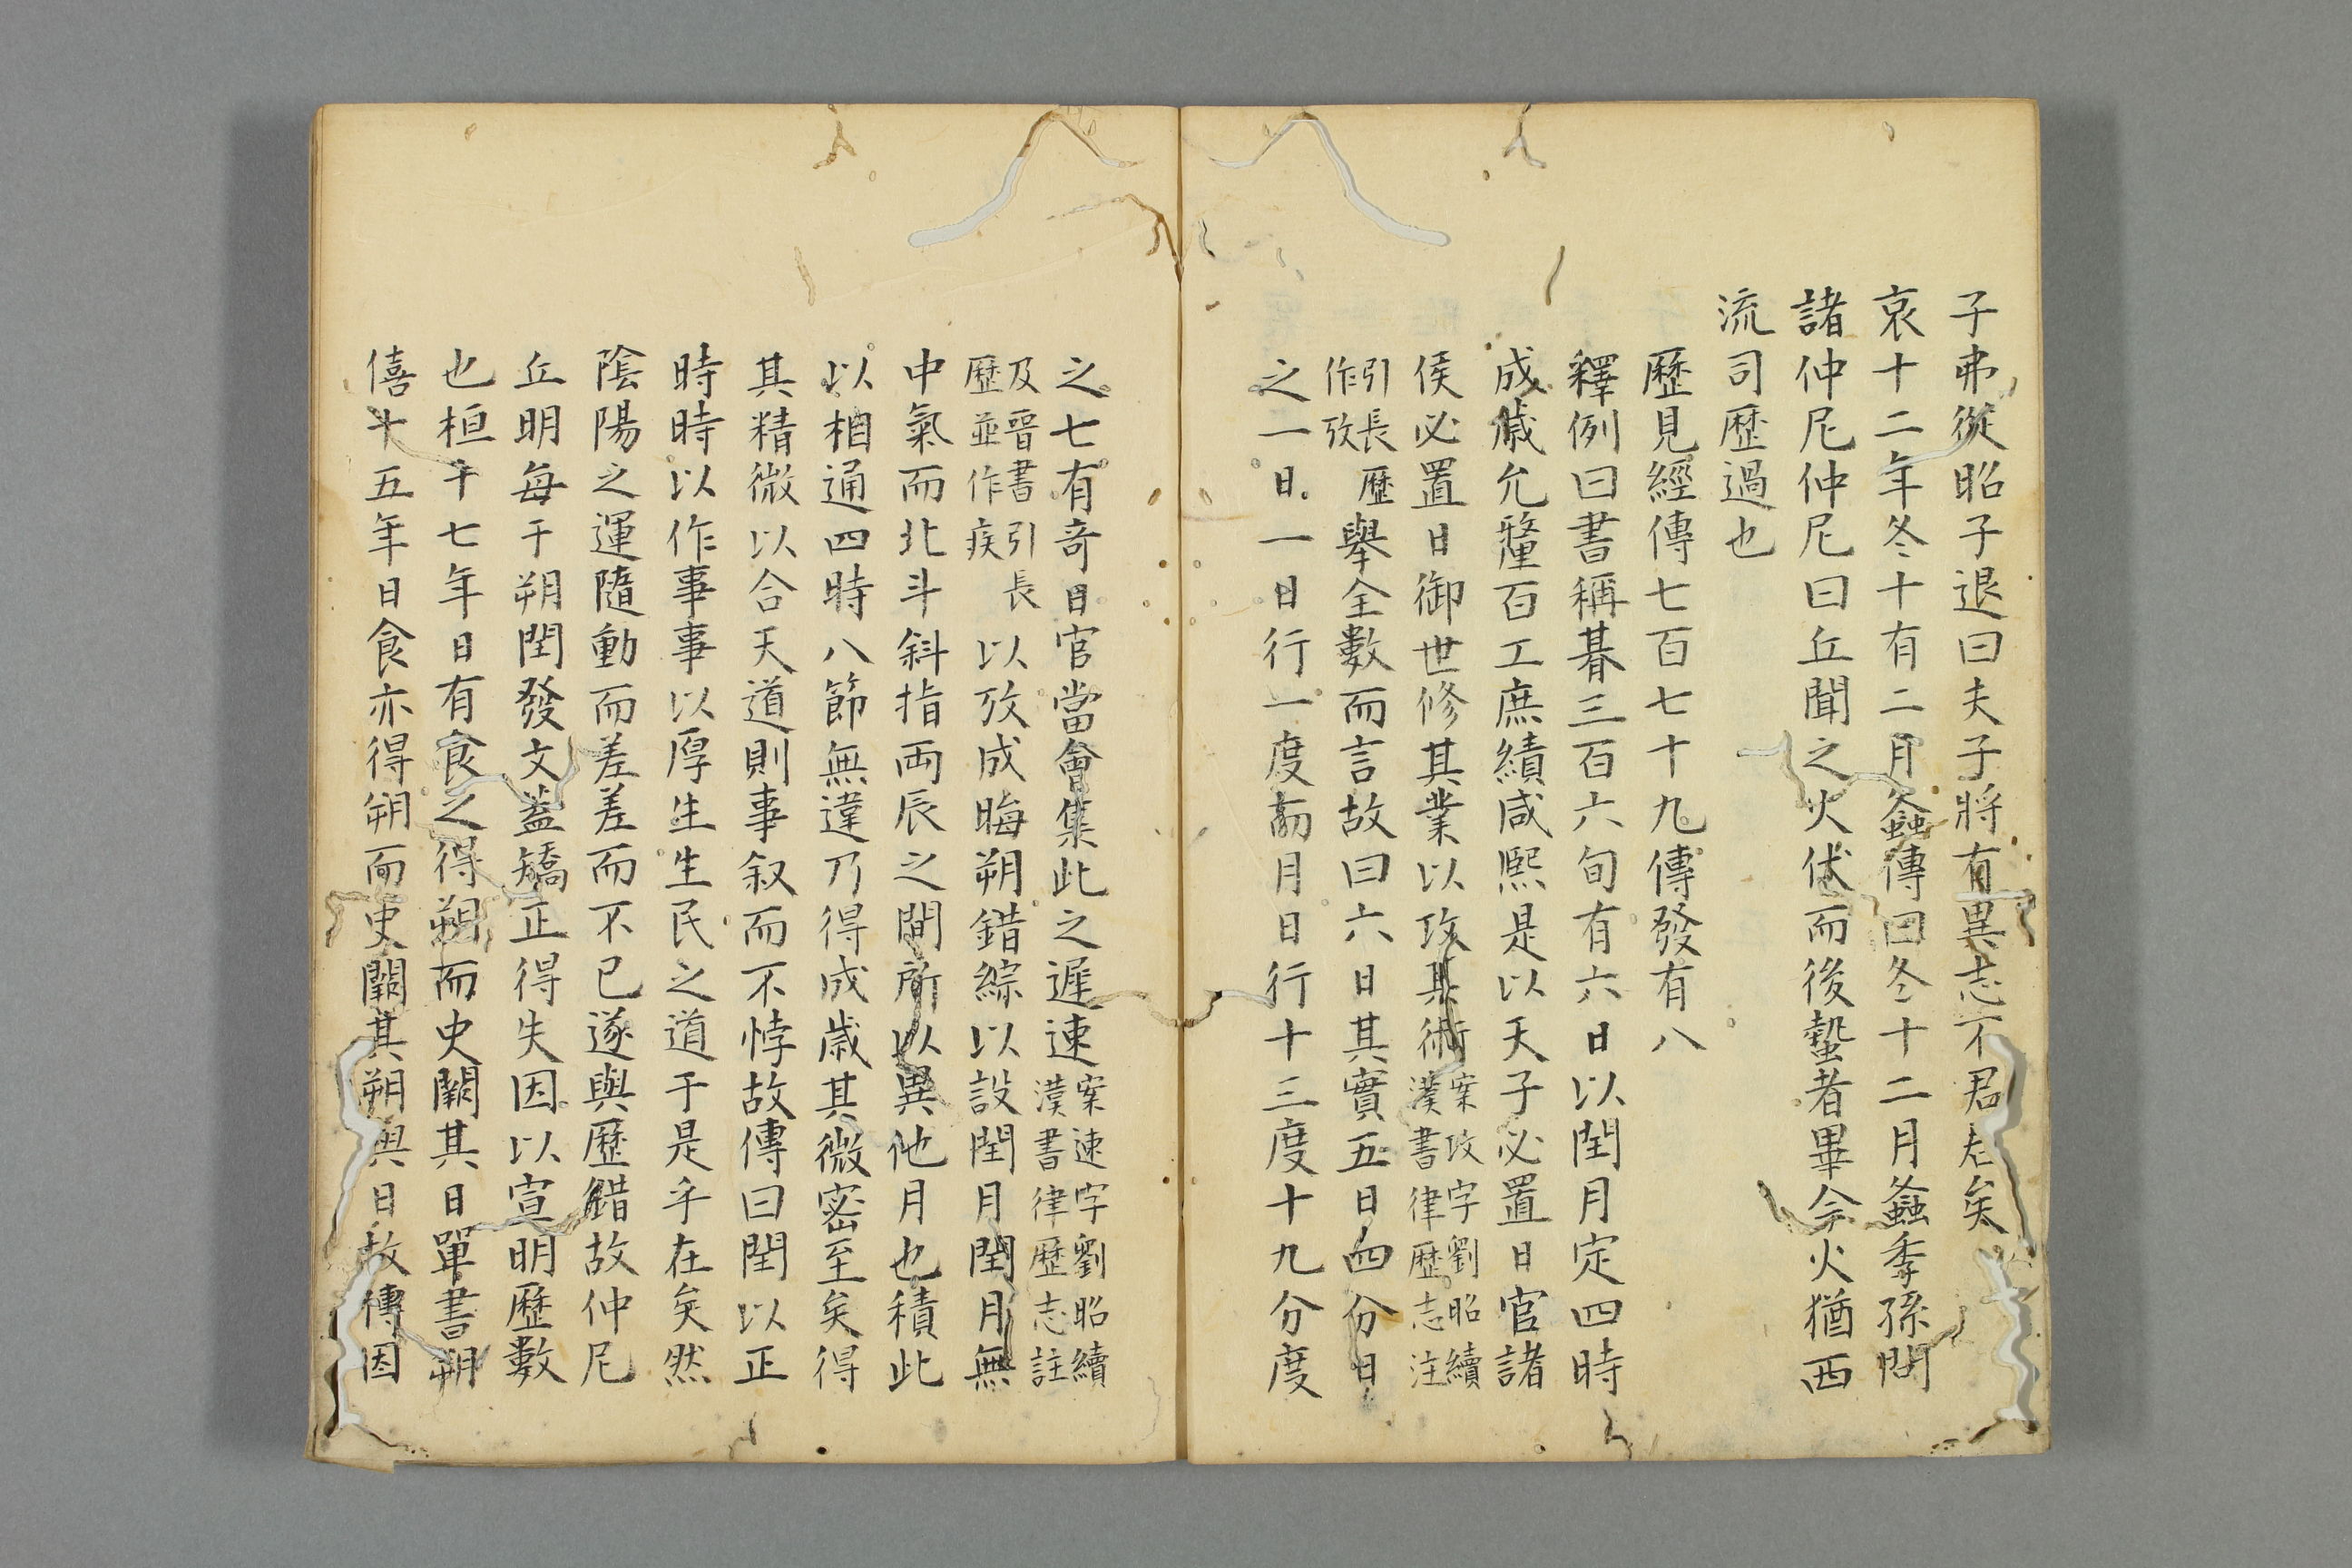 子弗從昭子退曰夫子將有異志不君君矣
哀十二年冬十有二月螽傳曰冬十二月螽季孫問
諸仲尼仲尼曰丘聞之火伏而後蟄者畢今火猶西
流司歷過也
歷見經傳七百七十九傳發有八
釋例曰書稱朞三百六旬有六日以閏月定四時
成歲允釐百工庶績咸熙是以天子必置日官諸
侯必置日御世修其業以攷其術案攷字劉昭續漢書律歷志注
引長歷作攷舉全數而言故曰六日其實五日四分日
之一日日行一度而月日行十三度十九分度
之七有奇日官當會集此之遲速案速字劉昭續漢書律歷志註
及晉書引長歷並作疾以攷成晦朔錯綜以設閏月閏月無
中氣而北斗斜指兩辰之間所以異他月也積此
以相通四時八節無違乃得成歲其微密至矣得
其精微以合天道則事叙而不悖故傳曰閏以正
時時以作事事以厚生生民之道于是乎在矣然
陰陽之運隨動而差差而不已遂與歷錯故仲尼
丘明每于朔閏發文蓋矯正得失因以宣明歷數
也桓十七年日有食之得朔而史闕其日單書朔
僖十五年日食亦得朔而史闕其朔與日故傳因